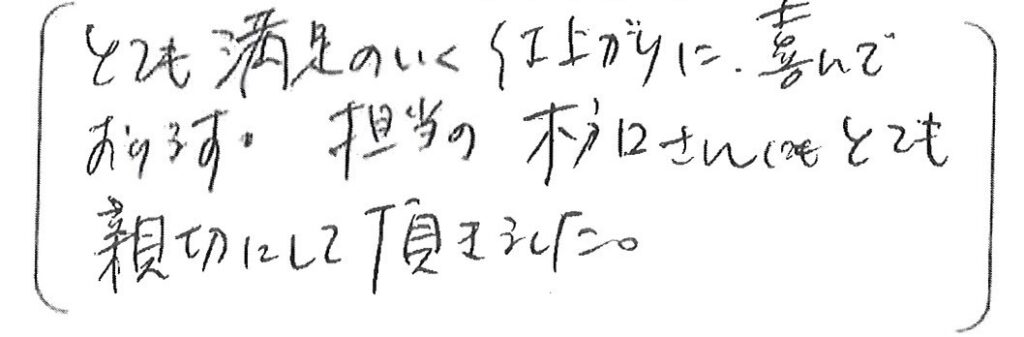 とても満足のいく仕上がりに、喜んで
おります。担当の 口さんにもとても
親切にして頂きました。